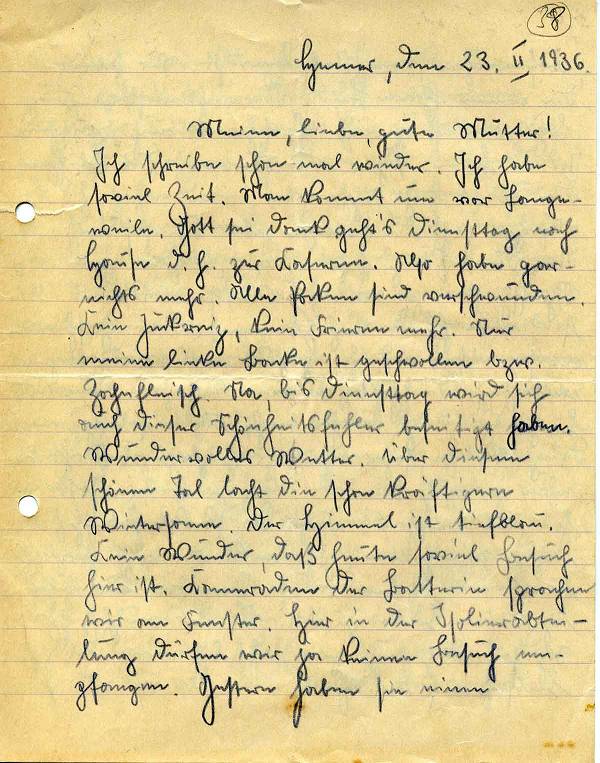 38
Hemer, den 23. II 1936.
Meine, liebe, gute Mutter!
Ich schreibe schon mal wieder. Ich habe
soviel Zeit. Man kommt um vor Lange-
weile. Gott sei dank geht's Diensttag nach
Hause d. h. zur Kaserne. Also habe gar-
nichts mehr. Alle Pocken sind verschwunden.
Kein Juckreiz, kein Frieren mehr. Nur
meine linke Backe ist geschwollen bzw.
Zahnfleisch. Na, bis Diensttag wird sich
auch dieser Schönheitsfehler beseitigt haben.
Wundervolles Wetter. Über diesem
schönen Tal lacht die schon kräftigere
Wintersonne. Der Himmel ist tiefblau.
Kein Wunder, daß heute soviel Besuch
hier ist. Kameraden der Batterie sprachen
wir am Fenster. Hier in der Isolierabtei-
lung dürfen wir ja keinen Besuch em-
pfangen. Gestern haben sie einen